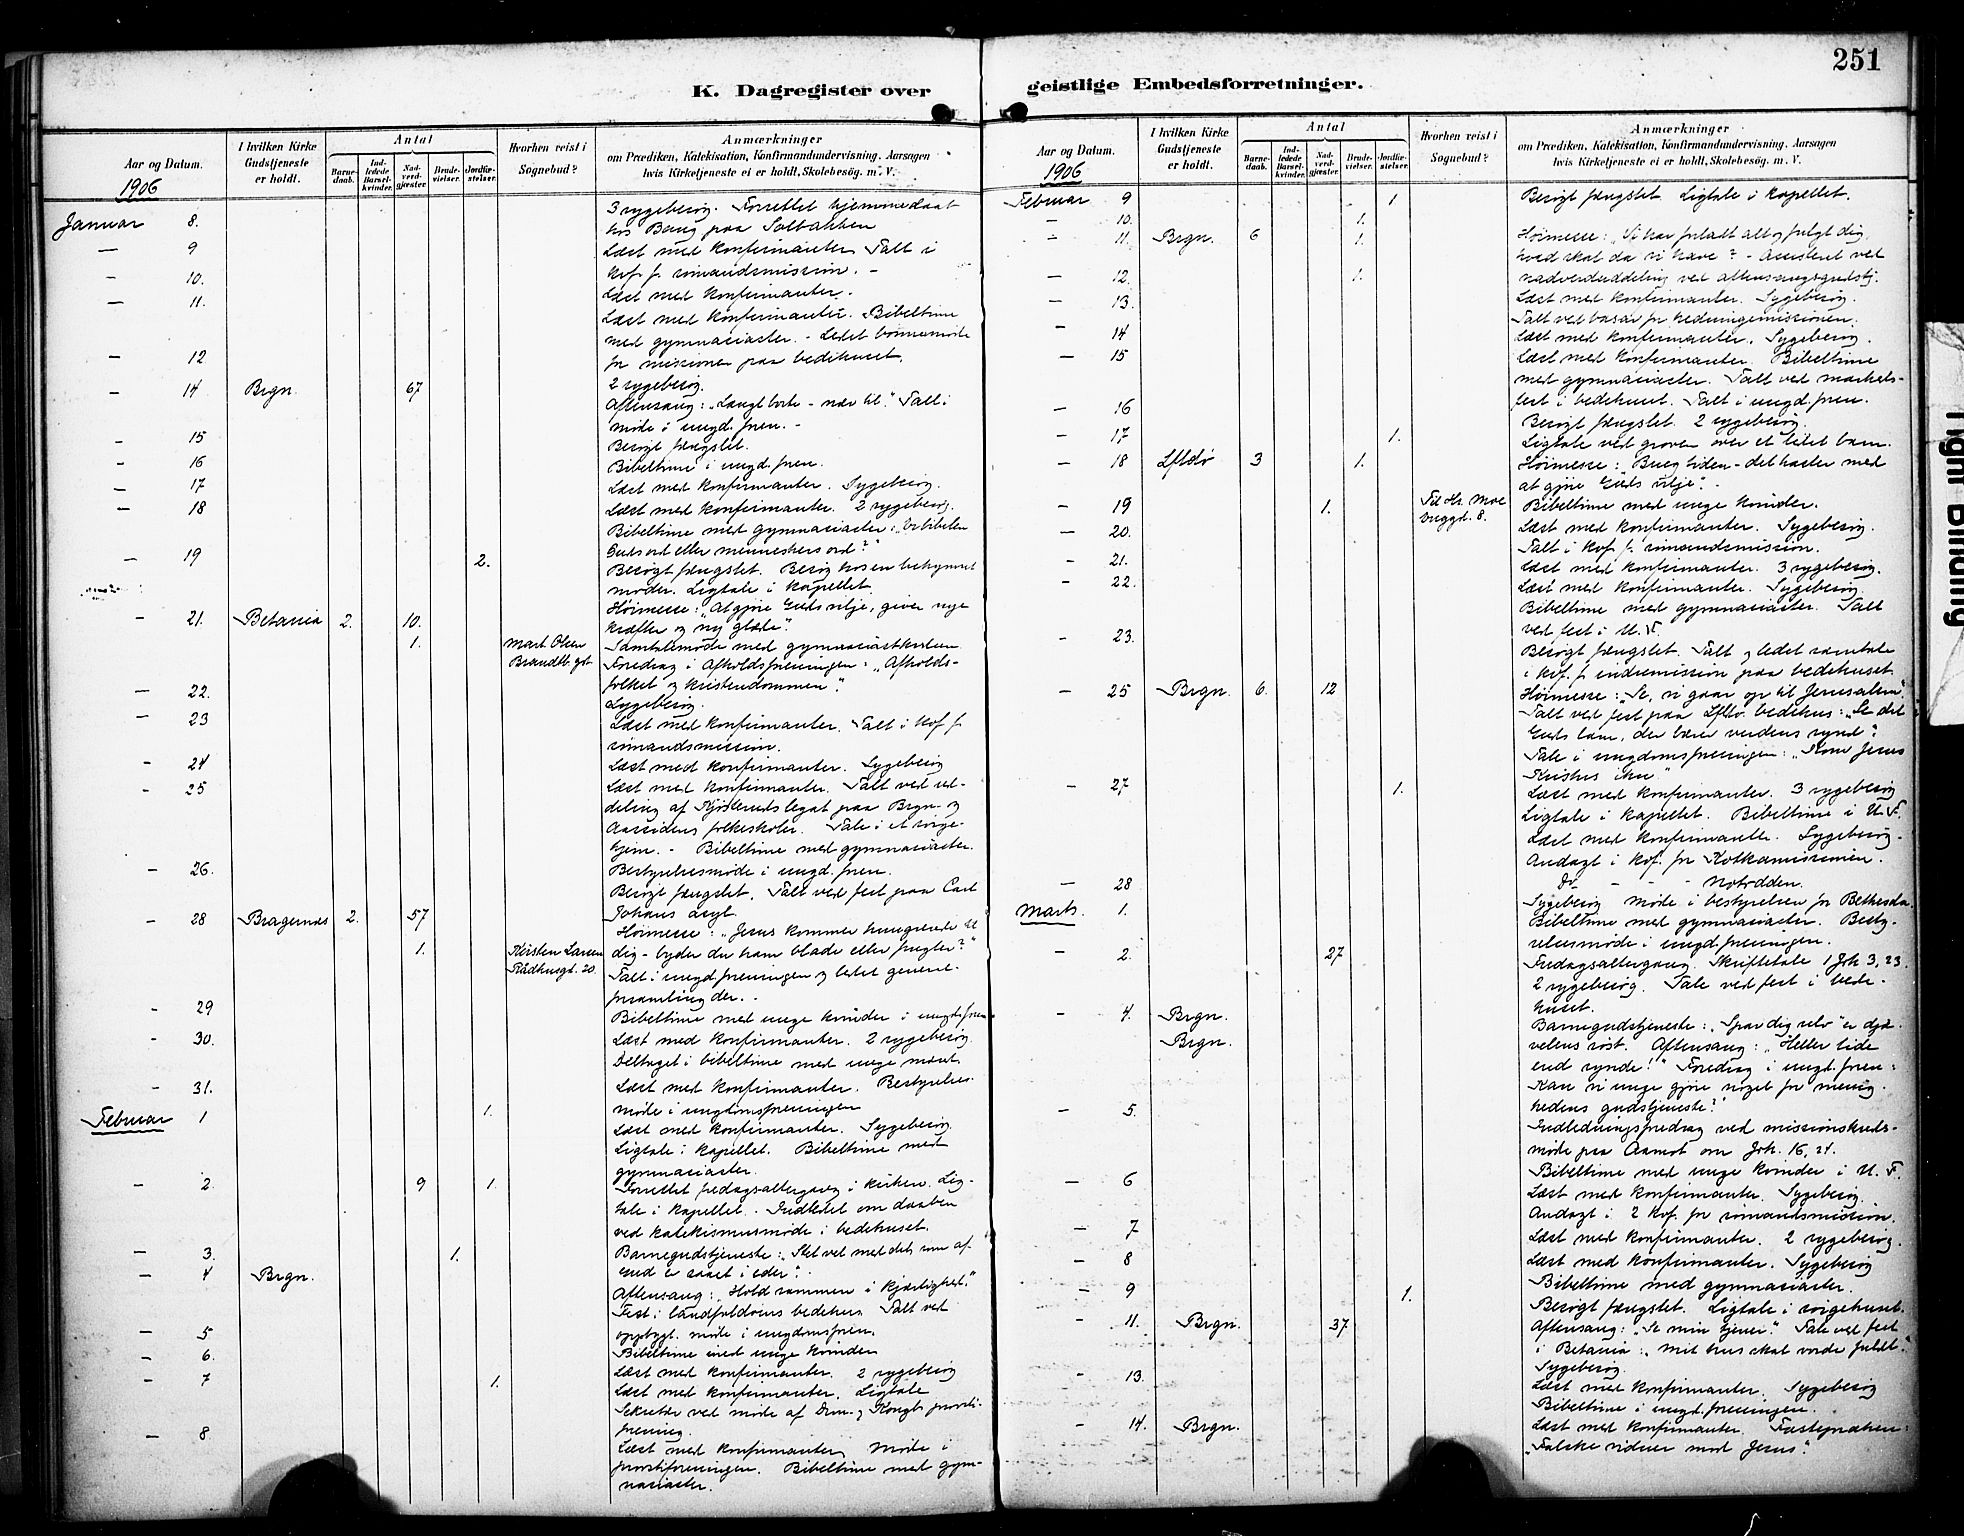 251
K. Dagregister over geistlige Embedsforretninger.
Aar og Datum.
I hvilken Kirke Gudstjeneste er holdt.
Antal
Barnedaab.
Indledede Barselkvinder.
Nadverdgjæster
Brudevielser.
Jordfæstelser.
Hvorhen reist i Sognebud?
Anmærkninger
om Prædiken, Katekisation, Konfirmandundervisning, Aarsagen
hvis Kirketjeneste ei er holdt, Skolebesög. m. V.
1906
Januar 8. 3 sygebesøg. Forrettet hjemmedaab
hos Berg paa Solbakken
— 9 Læst med konfirmanter. Talt i
kvf. f. sømandsmission. -
— 10. Læst med konfirmanter.
— 11. Læst med konfirmanter. Bibeltime
med gymnasiaster. - Ledet bønnemøde
for missionen paa bedehuset.
— 12 2 sygebesøg.
— 14 Brgn. 67 Aftensang: "Langt borte - nær til." Talt i
møde i ungd. foren. -
— 15 Besøgt fængslet.
— 16 Bibeltime i ungd. foren.
— 17 Læst med konfirmanter. Sygebesøg.
— 18 Læst med konfirmanter. 2 sygebesøg.
Bibeltime med gymnasiaster: "Er bibelen
Guds ord eller menneskers ord?"
— 19 2. Besøgt fængslet. Besøg hos en bekymret
moder. Ligtale i kapellet.
— 21. Betania 2. 10. Høimesse: "At gjøre Guds vilje, giver nye
kræfter og ny glæde".
1. Mart. Olsen Samtalemøde med gymnasiastkredsen
Brandtb. gt. Foredrag i Afholdsforeningen: "Afholds-
folket og kristendommen".
— 22. Sygebesøg.
— 23 Læst med konfirmanter. Talt i kvf. f.
sømandsmission.
— 24 Læst med konfirmanter. Sygebesøg
— 25 Læst med konfirmanter. Talt ved ud-
deling af legat paa Brgn. og
Aassidens folkeskoler. Tale i et sørge-
hjem. - Bibeltime med gymnasiaster.
— 26. Bestyrelsesmøde i ungd. foren.
Besøgt fængslet. Talt ved fest paa Carl
Johans asyl.
— 28 Bragernæs 2. 57 Høimesse: "Jesus kommer hungrende til
1. Kirsten Larsen dig - byder du ham blade eller frugter?"
Rådhusgt. 20. Talt i ungd. foreningen og ledet general-
forsamling der. -
— 29 Bibeltime med unge kvinder i ungd. foren
— 30. Læst med konfirmanter. 2 sygebesøg
Deltaget i bibeltime med unge mænd.
— 31. Læst med konfirmanter. Bestyrelses-
møde i ungdomsforeningen
Februar 1 1. Læst med konfirmanter. Sygebesøg.
Ligtale i kapellet. Bibeltime med
gymnasiaster.
— 2. 9 1. Forrettet fredagsaltergang i kirken. Lig-
tale i kapellet. Indledet om daaben
ved katekismusmøde i bedehuset.
— 3. 1. Barnegudstjeneste: "Stel vel med det, som af
Gud er saaet i eder".
— 4 Brgn. Aftensang: "Hold sammen i kjærlighed."
Fest i landfaldøens bedehus. Talt ved
— 5 opbygg. møde i ungdomsforen.
— 6. Bibeltime med unge kvinder
Læst med konfirmanter. 2 sygebesøg
— 7 1. Læst med konfirmanter. Ligtale
Sekretær ved møde af Drm. og Kongb. prosti-
forening.
— 8. Læst med konfirmanter. Møde i
prostiforeningen. Bibeltime med gym-
nasiaster.
Aar og Datum.
I hvilken Kirke Gudstjeneste er holdt.
Antal
Barnedaab.
Indledede Barselkvinder.
Nadverdgjæster
Brudevielser.
Jordfæstelser.
Hvorhen reist i Sognebud?
Anmærkninger
om Prædiken, Katekisation, Konfirmandundervisning, Aarsagen
hvis Kirketjeneste ei er holdt, Skolebesög. m. V.
1906
Februar 9 1 Besøgt fængslet. Ligtale i kapellet.
— 10. 1.
— 11. Brgn. 6 1. Høimesse: "Vi har forladt alt og fulgt dig
hvad skal da vi have? - Assisteret ved
— 12 1. nadveruddeling ved aftensangsgudstj.
— 13. Læst med konfirmanter. Sygebesøg.
Talt ved basar for hedningemissionen.
— 14 Læst med konfirmanter. Sygebesøg.
— 15 Læst med konfirmanter. Bibeltime
med gymnasiaster. Talt ved markeds-
fest i bedehuset. Talt i ungd. foren.
— 16 Besøgt fængslet. 2 sygebesøg.
— 17 1. Ligtale ved graven over et lidet barn.
— 18 Lfldø 3 1. Høimesse: "Brug tiden - det haster med
at gjøre Guds vilje". -
— 19 1. Til Hr. Moe Bibeltime med unge kvinder.
Byggt. 8.
— 20. Læst med konfirmanter. Sygebesøg.
Talt i kvf. f. sømandsmission.
— 21. Læst med konfirmanter. 3 sygebesøg.
— 22. Læst med konfirmanter. Sygebesøg
Bibeltime med gymnasiaster. Talt
ved fest i U. F.
— 23. Besøgt fængslet. Talt og ledet samtale
i kvf. f. indremission paa bedehuset
— 25 Brgn. 6. 12 Høimesse: "Se, vi gaar op til Jerusalem"
Talt ved fest paa Lfldø bedehus: "Se det
Guds lam, der bærer verdens synd".
Tale i ungdomsforeningen: "Kom Jesus
Kristus ihu"
— 27 1. Læst med konfirmanter. 3 sygebesøg
Ligtale i kapellet. Bibeltime i U. F.
Læst med konfirmanter. Sygebesøg.
Andagt i kvf. for Kotkamissionen.
— 28 Do - - - Notodden.
Marts. 1. Sygebesøg Møde i bestyrelsen for Bethesda
Bibeltime med gymnasiaster. Besty-
relsesmøde i ungd. foreningen.
— 2. 27 Fredagsaltergang. Skriftetale 1 Joh 3, 23.
2 sygebesøg. Tale ved fest i bede-
huset.
— 4. Brgn. Barnegudstjeneste: "Spar dig selv" er djæ-
Brgn. velens røst. Aftensang: "Heller lide
end synde!" Foredrag i ungd. foren:
"Kan vi unge gjøre noget for menig-
hedens gudstjeneste?"
— 5. Indledningsforedrag ved missionskreds-
møde paa Aamot om Joh. 16, 21.
Bibeltime med unge kvinder i U. F.
— 6 Læst med konfirmanter. Sygebesøg.
Andagt i 2 kvf. for sømandsmission.
— 7 Læst med konfirmanter. 2 sygebesøg.
— 8 Læst med konfirmanter. Sygebesøg
Bibeltime med gymnasiaster.
— 9 1. Besøgt fængslet. Ligtale i sørgehuset.
— 11. Brgn. 37 Aftensang: "Se min tjener." Tale ved fest
i Betania: "mit hus skal vorde fuldt."
Sygebesøg.
— 13. Læst med konfirmanter. Sygebesøg
Bibeltime i ungd. foreningen.
— 14. Brgn. Læst med konfirmanter. Fasteprædken:
"Falske vidner mod Jesus".